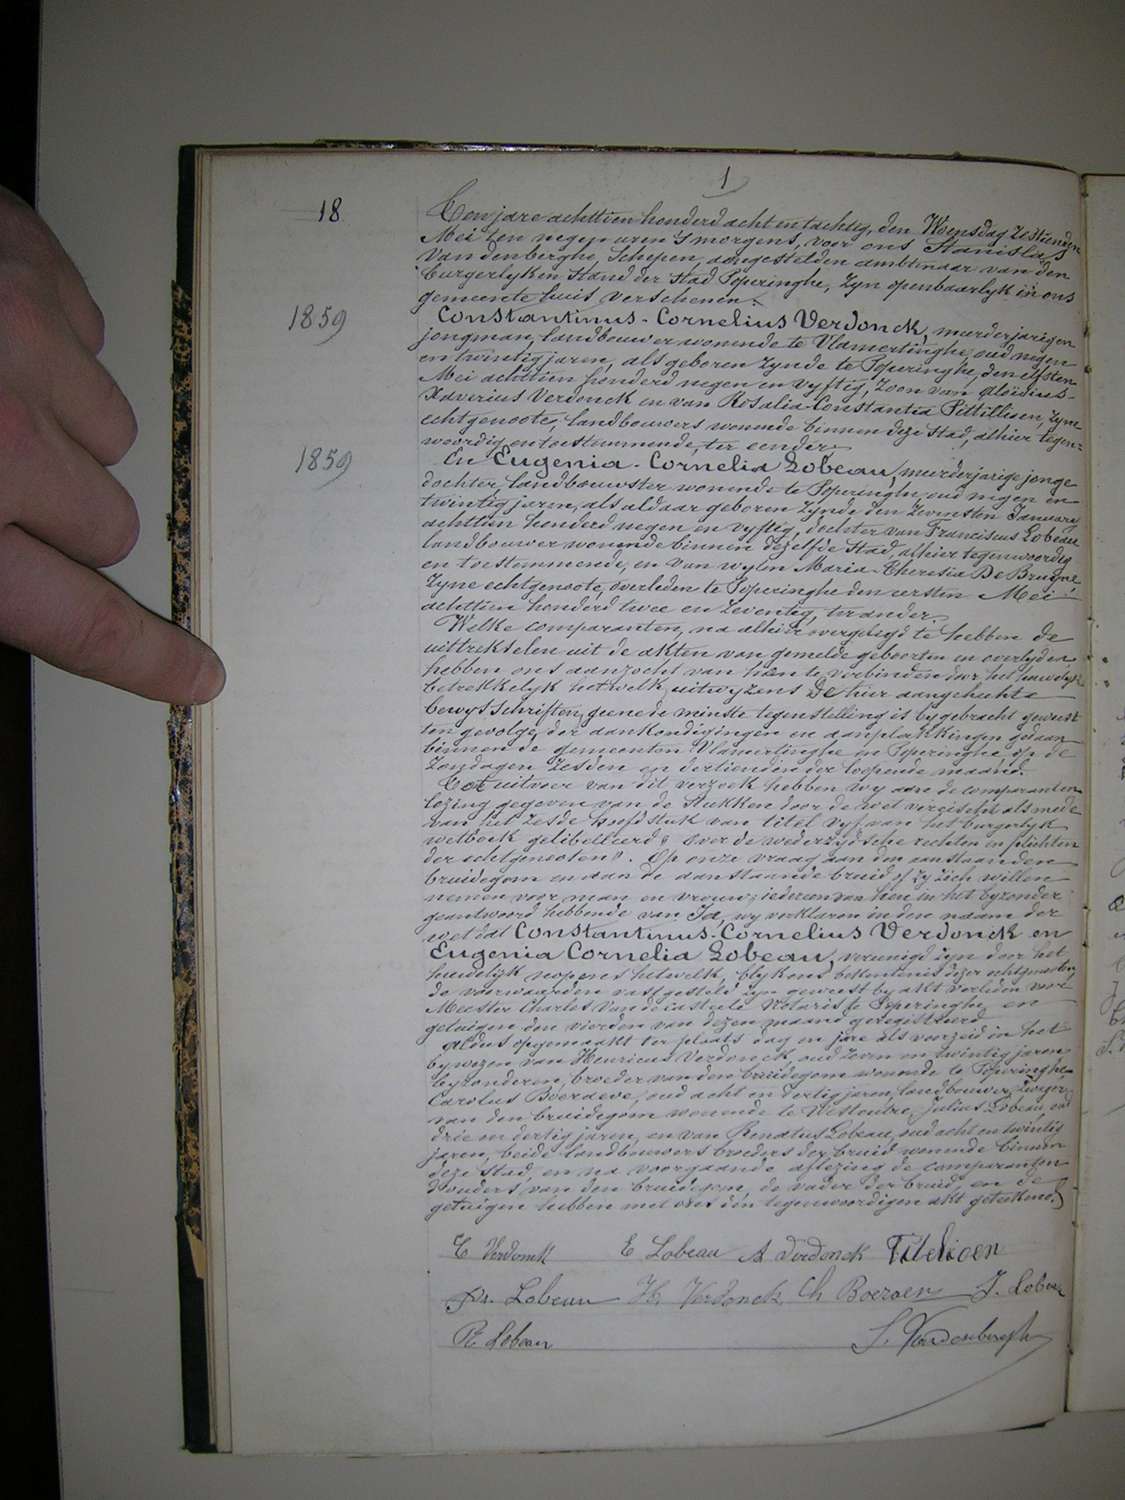 1
18
Ten jare achttien honderd acht en tachtig, den Woensdag zestienden
Mei ten negen uren 's morgens, voor ons Stanislas
Vandenberghe, Schepen, aangestelden ambtenaar van den
Burgerlyken Stand der Stad Poperinghe, zyn openbaarlyk in ons
gemeente huis verschenen:
1859
Constantinus-Cornelius Verdonck, meerderjarigen
jongman, landbouwer wonende te Vlamertinghe, oud negen
en twintig jaren, als geboren zynde te Poperinghe, den elfsten
Mei achttien honderd negen en vyftig, zoon van Aloïsius-
Xaverius Verdonck en van Rosalia-Constantia Pittillioen, zyne
echtgenoote, landbouwers wonende binnen deze Stad, alhier tegen=
woordig en toestemmende, ter eender
1859
En Eugenia-Cornelia Lobeau, meerderjarige jonge
dochter, landbouwster wonende te Poperinghe, oud negen en
twintig jaren, als aldaar geboren zynde den zevensten January
achttien honderd negen en vyftig, dochter van Franciscus Lobeau
landbouwer wonende binnen dezelfde Stad, alhier tegenwoordig
en toestemmende, en van wylen Maria-Theresia De Bruyne
zyne echtgenoote, overleden te Poperinghe den eersten Mei
achttien honderd twee en zeventig, ter ander.
Welke comparanten, na alhier overgelegd te hebben de
uittrekselen uit de akten van gemelde geboorten en overlyden
hebben ons aanzocht van hen te verbinden door het huwelyk
betrekkelyk hetwelk, uitwyzens de hier aangehechte
bewysschriften, geene de minste tegenstelling is bygebracht geweest
ten gevolge der aankondigingen en aanplakkingen gedaan
binnen de gemeenten Vlamertinghe en Poperinghe op de
Zondagen zesden en dertienden der loopende maand.
Tot uitvoer van dit verzoek hebben wy aan de comparanten
lezing gegeven van de stukken door de wet vereischt alsmede
van het zesde hoofdstuk van titel vyf van het burgerlyk
wetboek gelibelleerd "Over de wederzydsche rechten en plichten
der echtgenooten". Op onze vraag aan den aanstaanden
bruidegom en aan de aanstaande bruid of zy zich willen
nemen voor man en vrouw; iedereen van hen in het byzonder
geantwoord hebbende van Ja, wy verklaren in den naam der
wet dat Constantinus-Cornelius Verdonck en
Eugenia Cornelia Lobeau, vereenigd zyn door het
huwelijk nopens hetwelk, blykens bekentenis dezer echtgenooten,
de voorwaarden vastgesteld zyn geweest by akt verleden voor
Meester Charles Van de casteele Notaris te Poperinghe en
getuigen den vierden van dezen maand geregistreerd
Aldus opgemaakt ter plaats dag en jare als voorzeid in het
bywezen van Henricus Verdonck, oud zeven en twintig jaren
byzonderen, broeder van den bruidegom wonende te Poperinghe
Carolus Boeraeve, oud acht en dertig jaren, landbouwer, zwager
van den bruidegom wonende te Westoutre, Julius Lobeau, oud
drie en dertig jaren, en van Renatus Lobeau, oud acht en twintig
jaren, beide landbouwers broeders der bruid wonende binnen
deze Stad, en na voorgaande aflezing de comparanten
d'ouders van den bruidegom, de vader der bruid, en de
getuigen hebben met ons den tegenwoordigen akt geteekend.
C Verdonck E Lobeau A Verdonck
Fr. Lobeau H. Verdonck Ch J. Lobeau
R Lobeau S. Vandenbergh